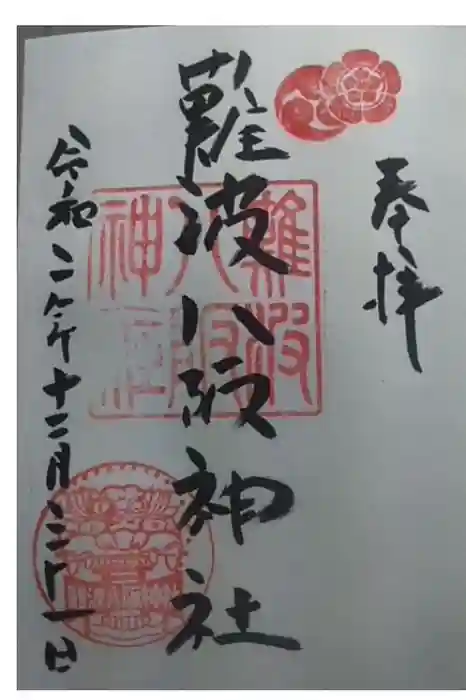 奉拝
難波八阪神社
難波
八阪
神社
令和二年十二月三十一日